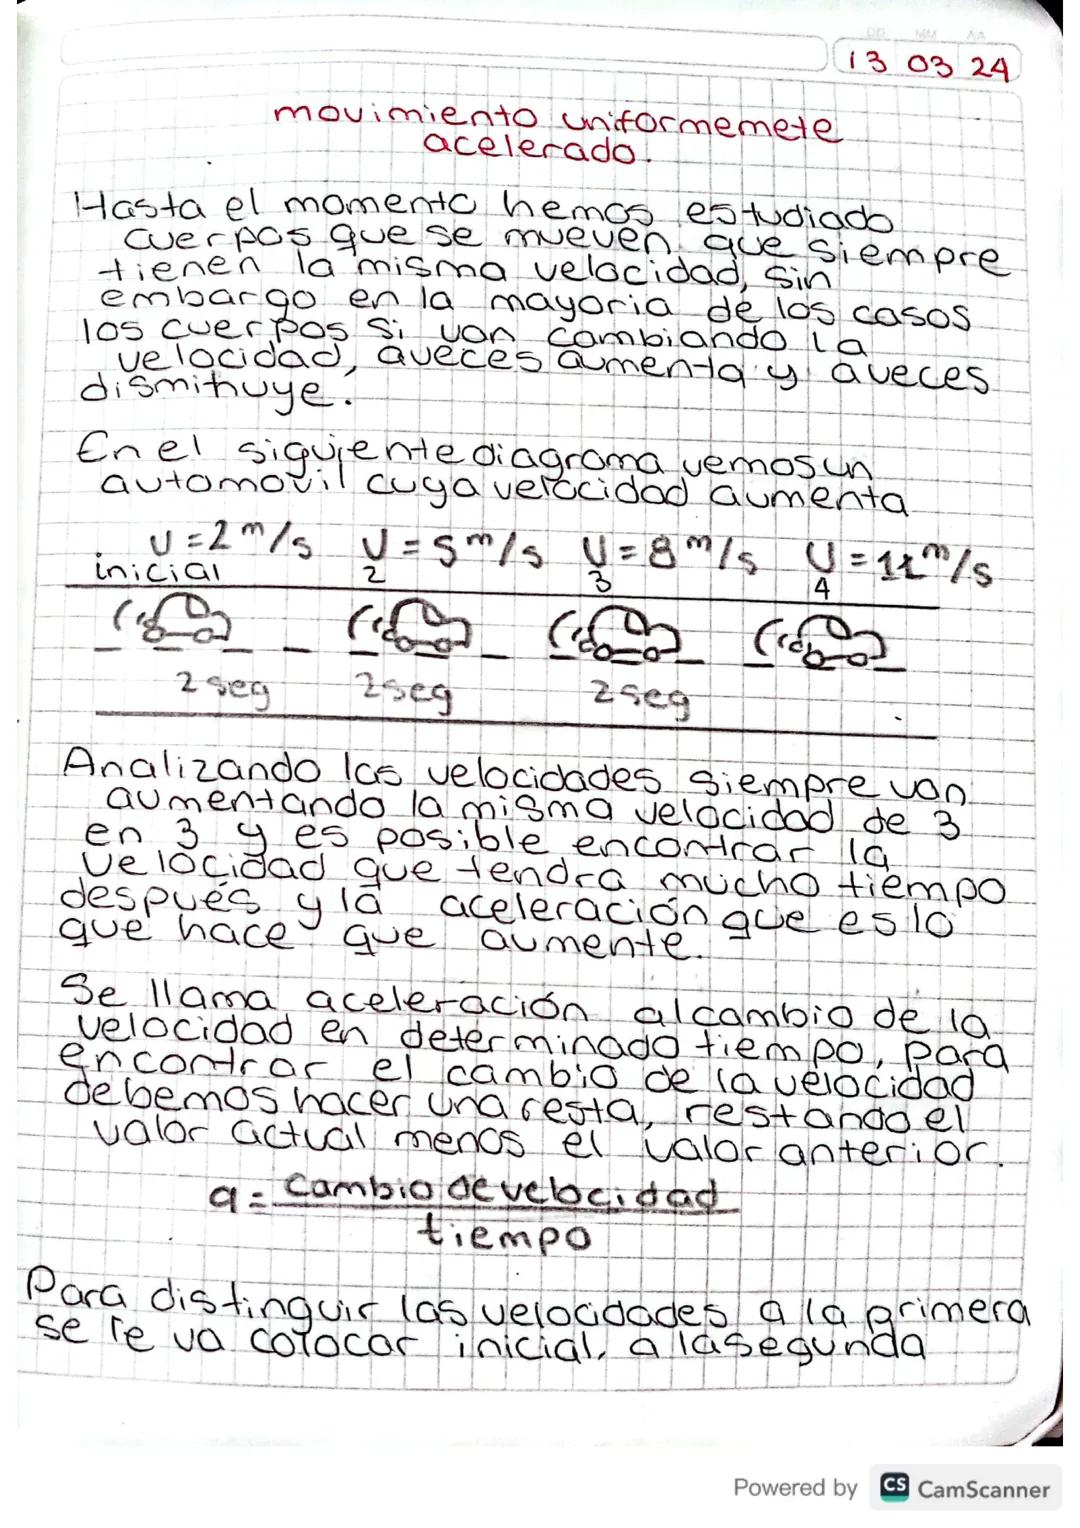 DD MM AA
13 03 24
movimiento uniformemete
acelerado.
Hasta el momento hemos estudiado
cuerpos que se mueven que siempre
tienen la misma velocidad, sin
embargo en la mayoria de los casos
los cuerpos si van cambiando la
velocidad, aveces aumenta y aveces
dismihuye.
En el siguiente diagrama vemos un
automovil cuya velocidad aumenta
V=2 m/s V=5 m/s V=8 m/s V=11 m/s
inicial 2 3 4
2 seg 2 seg 2 seg
Analizando las velocidades siempre van
aumentando la misma velocidad de 3
en 3 y es posible encontrar la
velocidad que tendra mucho tiempo
después y la aceleración que es lo
que hace que aumente.
Se llama aceleración al cambio de la
velocidad en determinado tiempo, para
encontrar el cambio de la velocidad
debemos hacer una resta, restando el
valor actual menos el valor anterior.
a = cambio de velocidad
tiempo
Para distinguir las velocidades a la primera
se le va colocar inicial, a la segunda
Powered by CS CamScanner